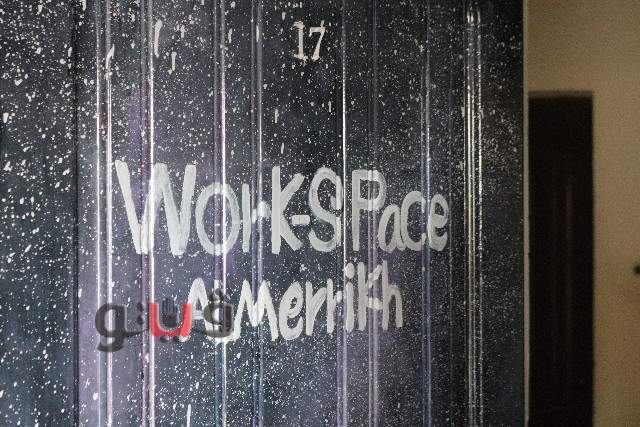 17
Work-SPace
Al Merrikh
ڤيتو